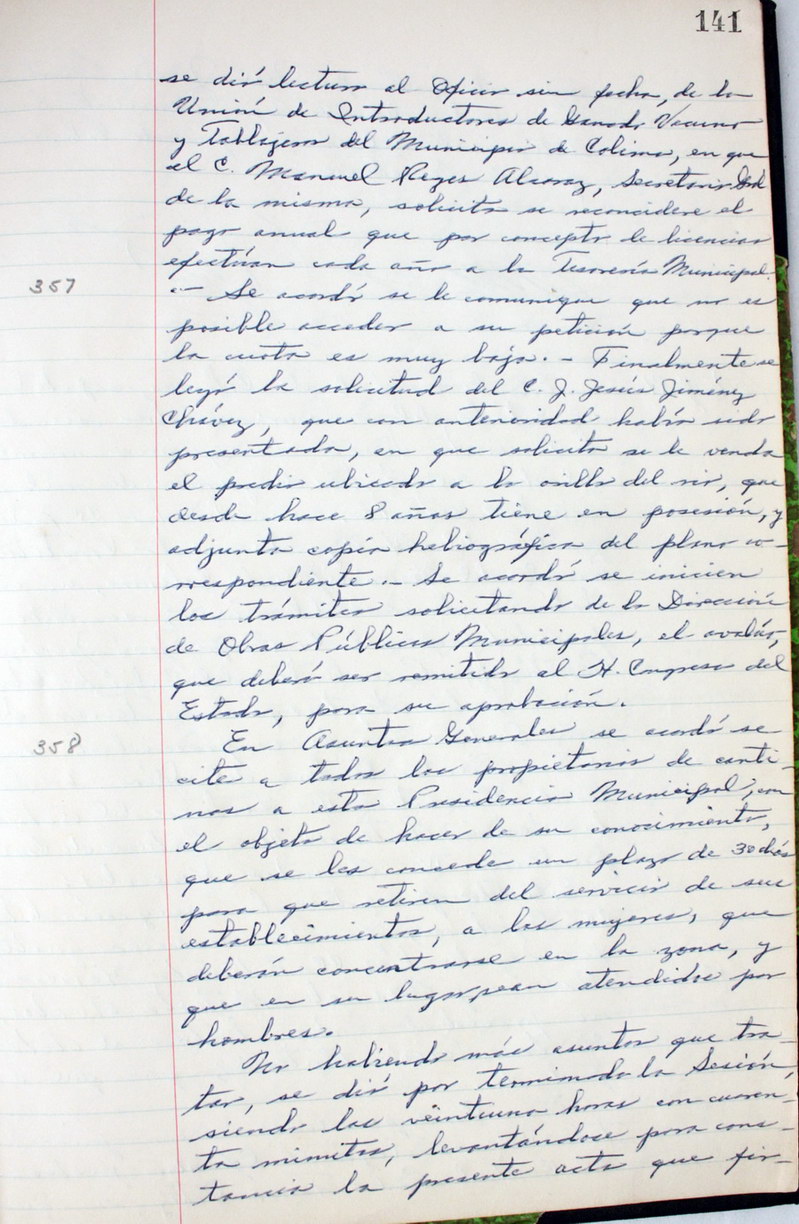 141
se dió lectura al Oficio sin fecha, de la
Unión de Introductores de Ganado Vacuno
y Tablajeros del Municipio de Colima, en que
el C. Manuel Reyes Alcaraz, Secretario Gral
de la misma, solicita se reconcidere el
pago anual que por concepto de licencias
efectúan cada año a la Tesorería Municipal.
357
.- Se acordó se le comunique que no es
posible acceder a su petición porque
la cuota es muy baja. - Finalmente se
leyó la solicitud del C. J. Jesús Jiménez
Chávez, que con anterioridad había sido
presentada, en que solicita se le venda
el predio ubicado a la orilla del rio, que
desde hace 8 años tiene en posesión, y
adjunta copia heliográfica del plano co-
rrespondiente. - Se acordó se inicien
los trámites solicitando de la Dirección
de Obras Públicas Municipales, el avalúo,
que deberá ser remitido al H. Congreso del
Estado, para su aprobación.
358
En Asuntos Generales se acordó se
cite a todos los propietarios de canti-
nas a esta Presidencia Municipal, con
el objeto de hacer de su conocimiento,
que se les concede un plazo de 30 días
para que retiren del servicio de sus
establecimientos, a las mujeres, que
deberán concentrarse en la zona, y
que en su lugar sean atendidos por
hombres.
No habiendo más asuntos que tra-
tar, se dió por terminada la Sesión,
siendo las veintiuna horas con cuaren-
ta minutos, levantándose para cons-
tancia la presente acta que fir-